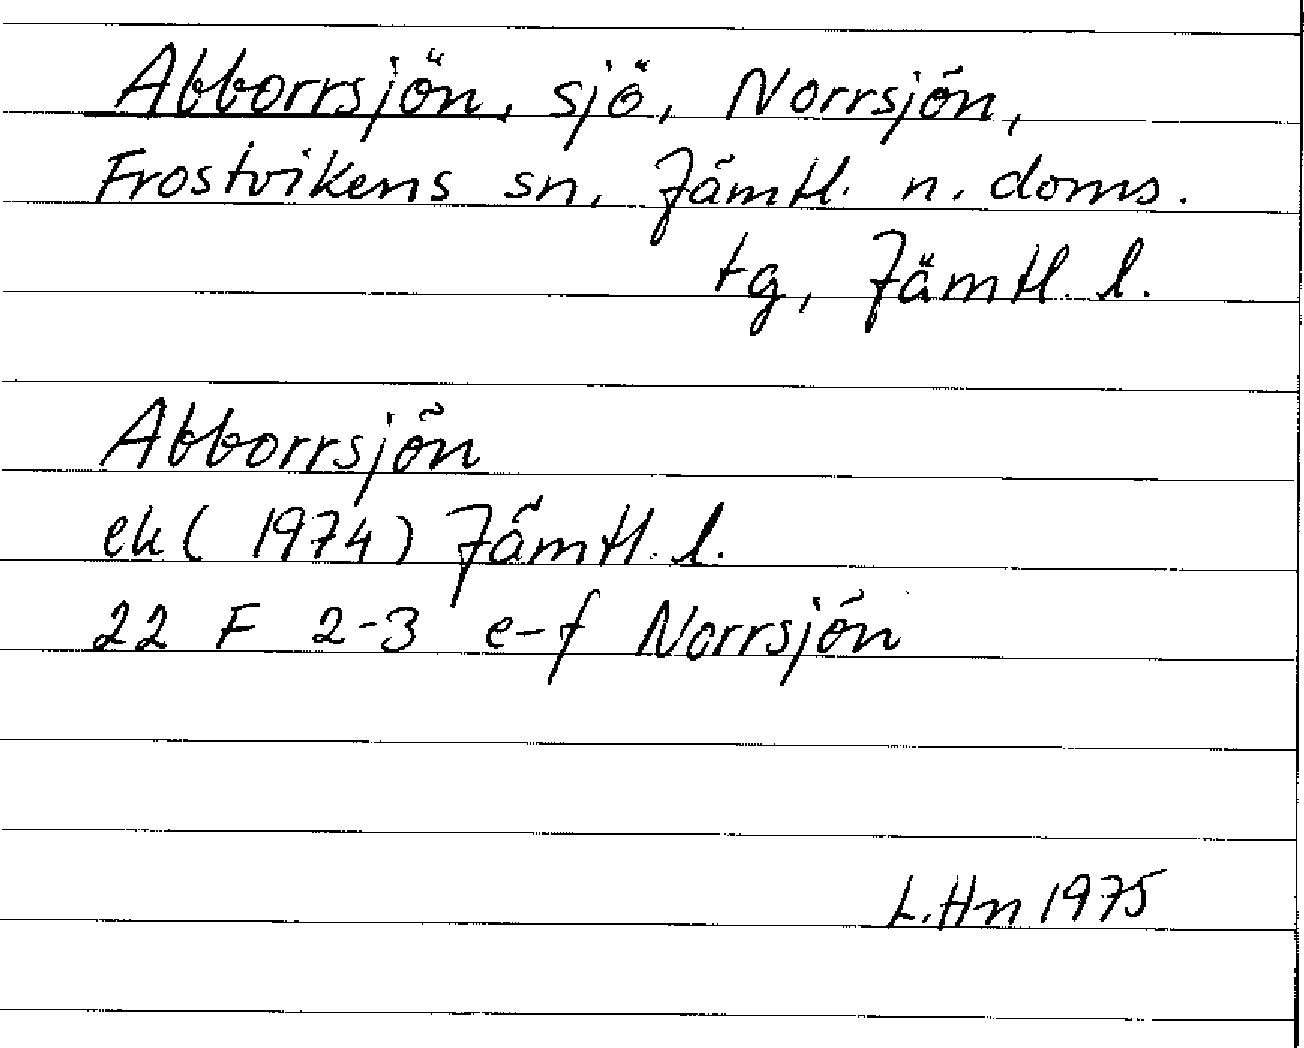 Abborrsjön, sjö, Norrsjön,
Frostvikens sn, Jämtl. n. doms.
tg, Jämtl. l.
Abborrsjön
ek (1974) Jämtl. l.
22 F 2-3 e-f Norrsjön
L.Hn 1975